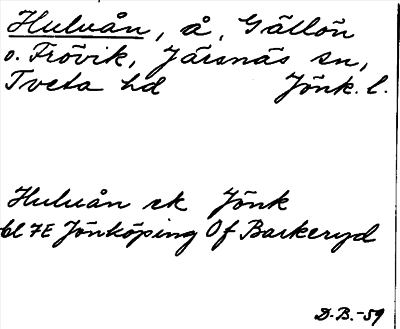 Huluån, å, Gällön
o. Frövik, Järsnäs sn,
Tveta hd Jönk. l.
Huluån ek Jönk
bl 7E Jönköping Of Barkeryd
D.B.-59